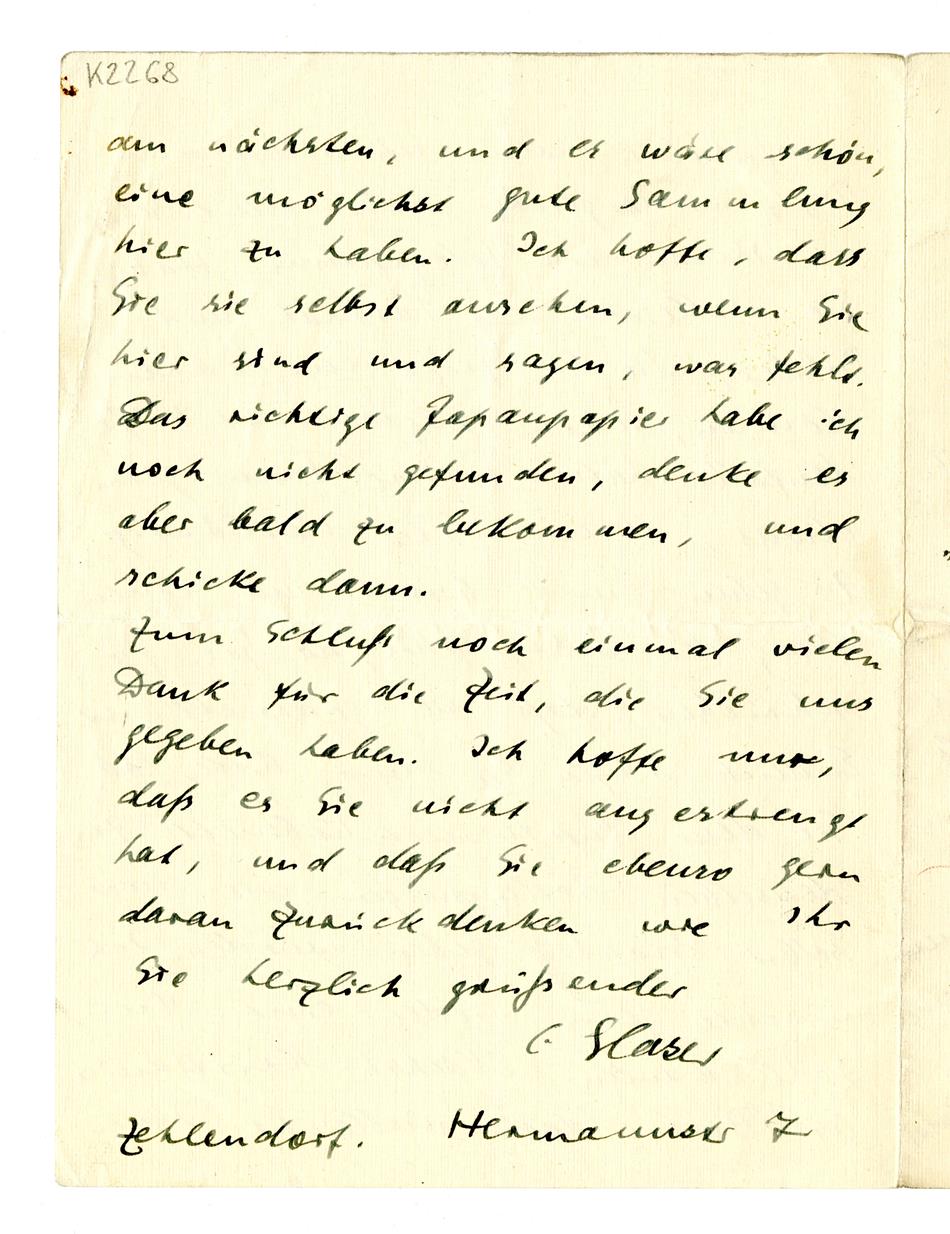 K2268
am nächsten, und es wäre schön,
eine möglichst gute Sammlung
hier zu haben. Ich hoffe, dass
Sie sie selbst ansehen, wenn Sie
hier sind und sagen, was fehlt.
Das richtige Japanpapier habe ich
noch nicht gefunden, denke es
aber bald zu bekommen, und
schicke dann.
Zum Schluß noch einmal vielen
Dank für die Zeit, die Sie uns
gegeben haben. Ich hoffe nur,
daß es Sie nicht angestrengt
hat, und daß Sie ebenso gern
daran zurückdenken wie Ihr
Sie herzlich grüßender
C. Glaser
Zehlendorf. Hermannstr 7